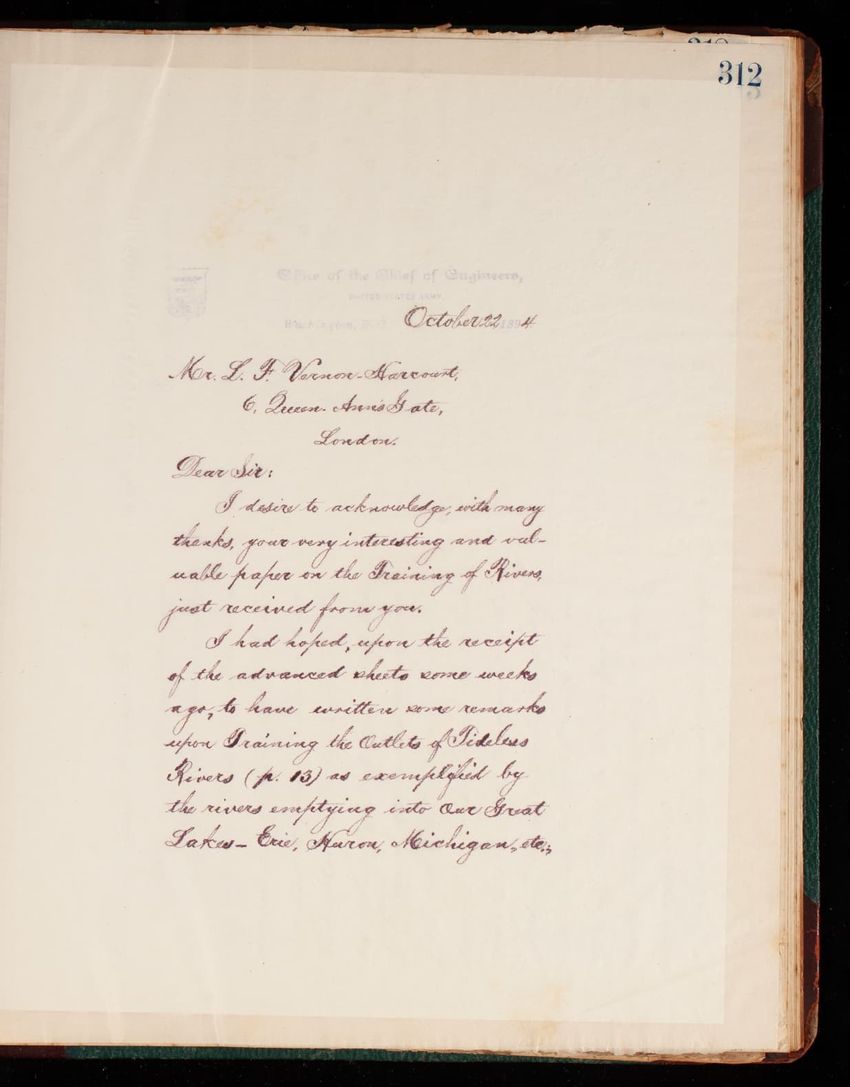 312
Office of the Chief of Engineers,
UNITED STATES ARMY,
Washington, D.C. October 22 1894
Mr. L. F. Vernon-Harcourt,
6, Queen Ann's Gate,
London.
Dear Sir:
I desire to acknowledge, with many
thanks, your very interesting and val-
uable paper on the Training of Rivers,
just received from you.
I had hoped, upon the receipt
of the advanced sheets some weeks
ago, to have written some remarks
upon Training the Outlets of Tideless
Rivers (p. 13) as exemplified by
the rivers emptying into our Great
Lakes - Erie, Huron, Michigan, etc.,